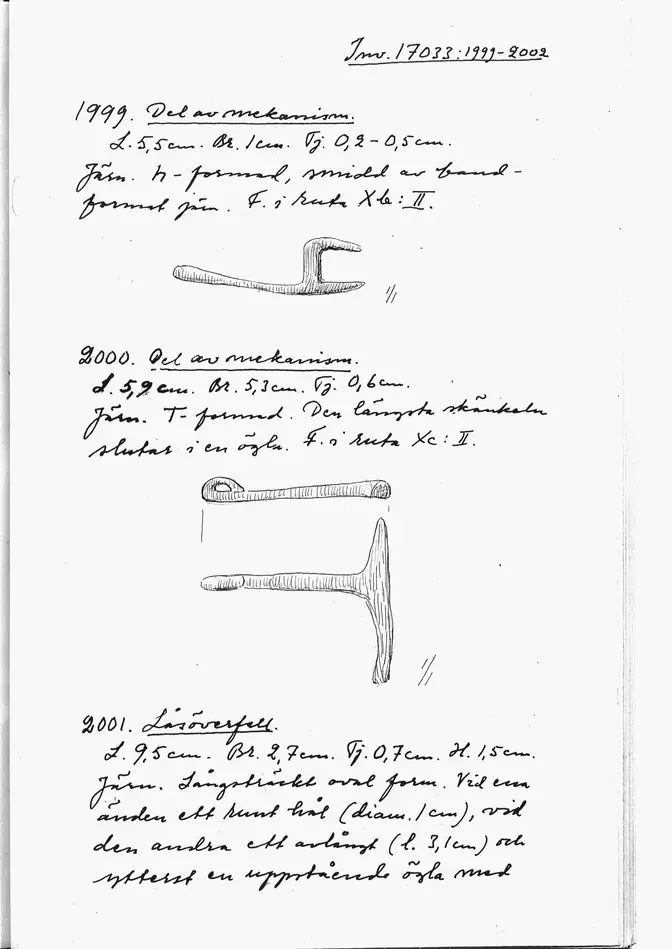 Inv. 17033:1999-2002
1999. Del av mekanism.
L. 5,5cm. Br. 1cm. Tj. 0,2-0,5cm.
Järn. h-formad, smidd av band-
format järn. F. i ruta Xb:II.
1/1
2000. Del av mekanism.
L. 5,9cm. Br. 5,3cm. Tj. 0,6cm.
Järn. T-formad. Den längsta skänkeln
slutar i en ögla. F. i ruta Xc:II.
1/1
2001. Låsöverfall.
L. 9,5cm. Br. 2,7cm. Tj. 0,7cm. H. 1,5cm.
Järn. Långsträckt oval form. Vid ena
änden ett runt hål (diam. 1cm), vid
den andra ett avlångt (l. 3,1cm) och
ytterst en uppstående ögla med